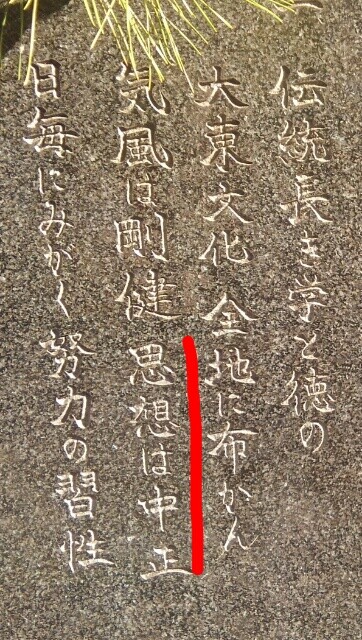 伝統長き学と徳の
大東文化 全地に布かん
気風は剛健 思想は中正
日毎にみがく 努力の習性